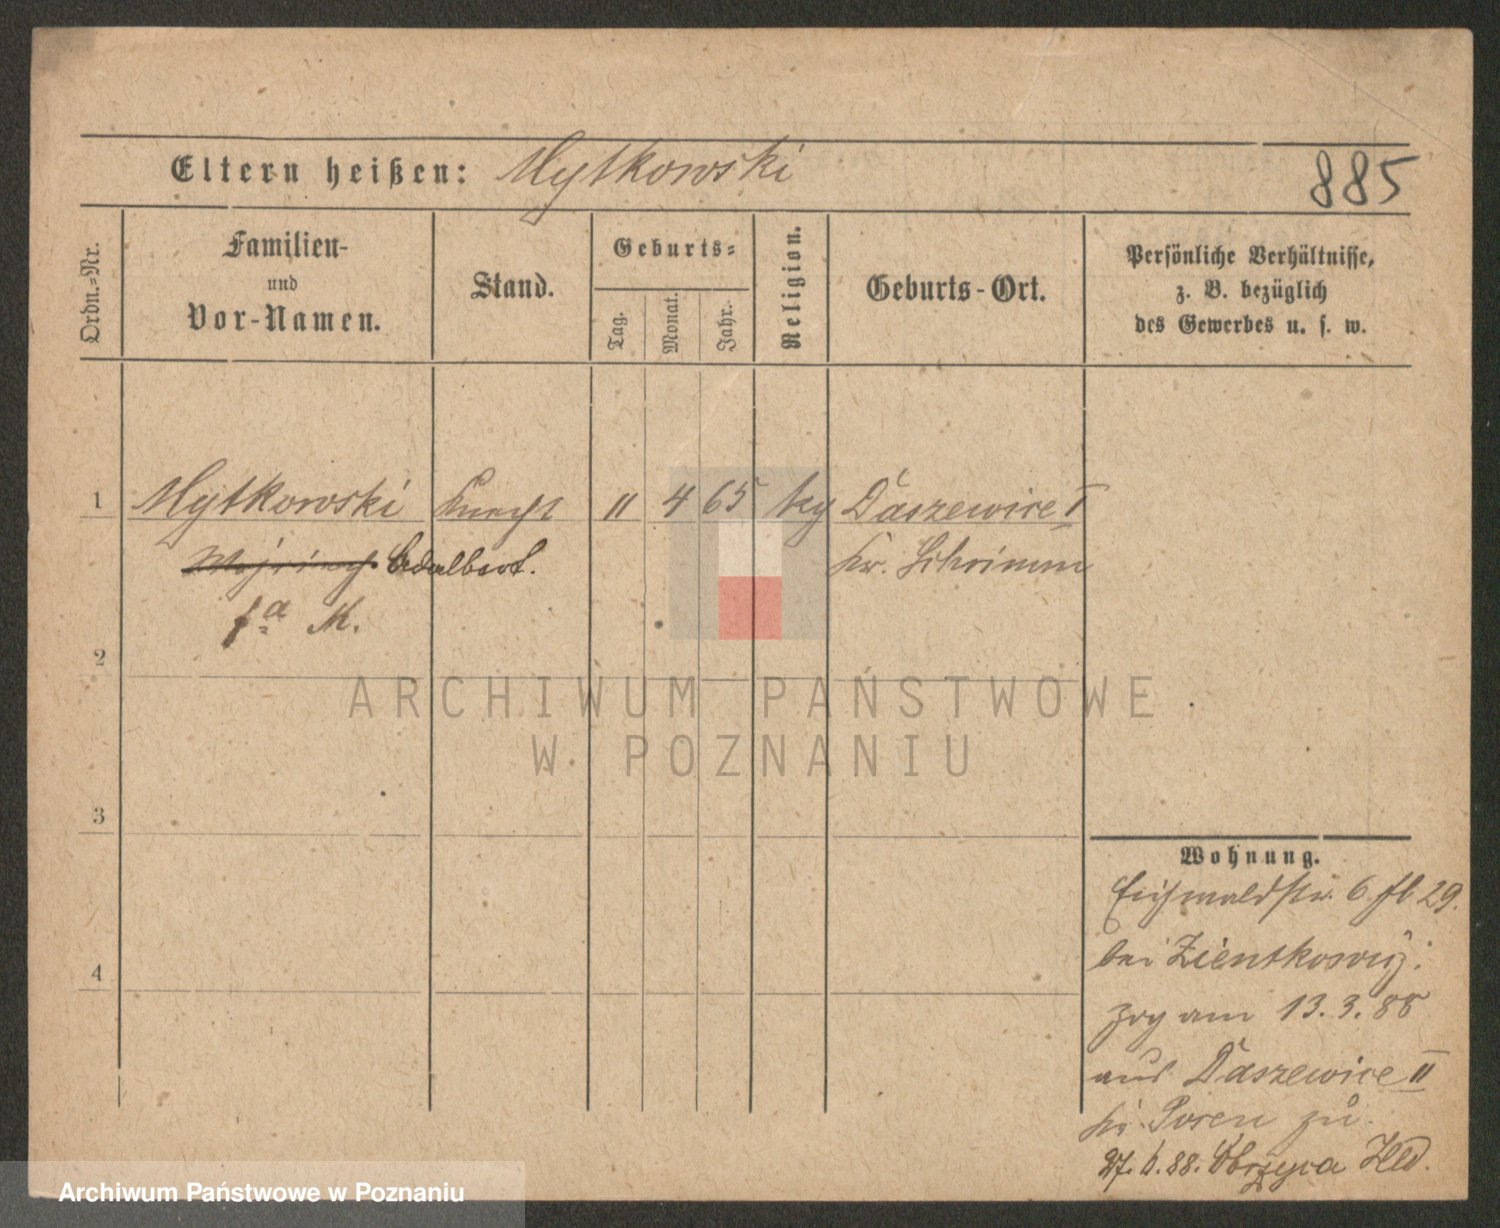 Eltern heißen: Mytkowski
885
Ordn.-Nr.
Familien-
und
Vor-Namen.
Stand.
Geburts-
Tag.
Monat.
Jahr.
Religion.
Geburts-Ort.
Persönliche Verhältnisse,
z. B. bezüglich
des Gewerbes u. s. w.
1 Mytkowski Knecht 11 4 65 kg Daszewice I
Adalbert. Kr. Schrimm
M.
2
3
4
ARCHIWUM PAŃSTWOWE
W POZNANIU
Wohnung.
Eichwaldstr. 6 29.
bei Zientkowicz.
zog am 13.3.88
aus Daszewice II
Kr. Posen zu.
88. Obrzyca Hld.
Archiwum Państwowe w Poznaniu